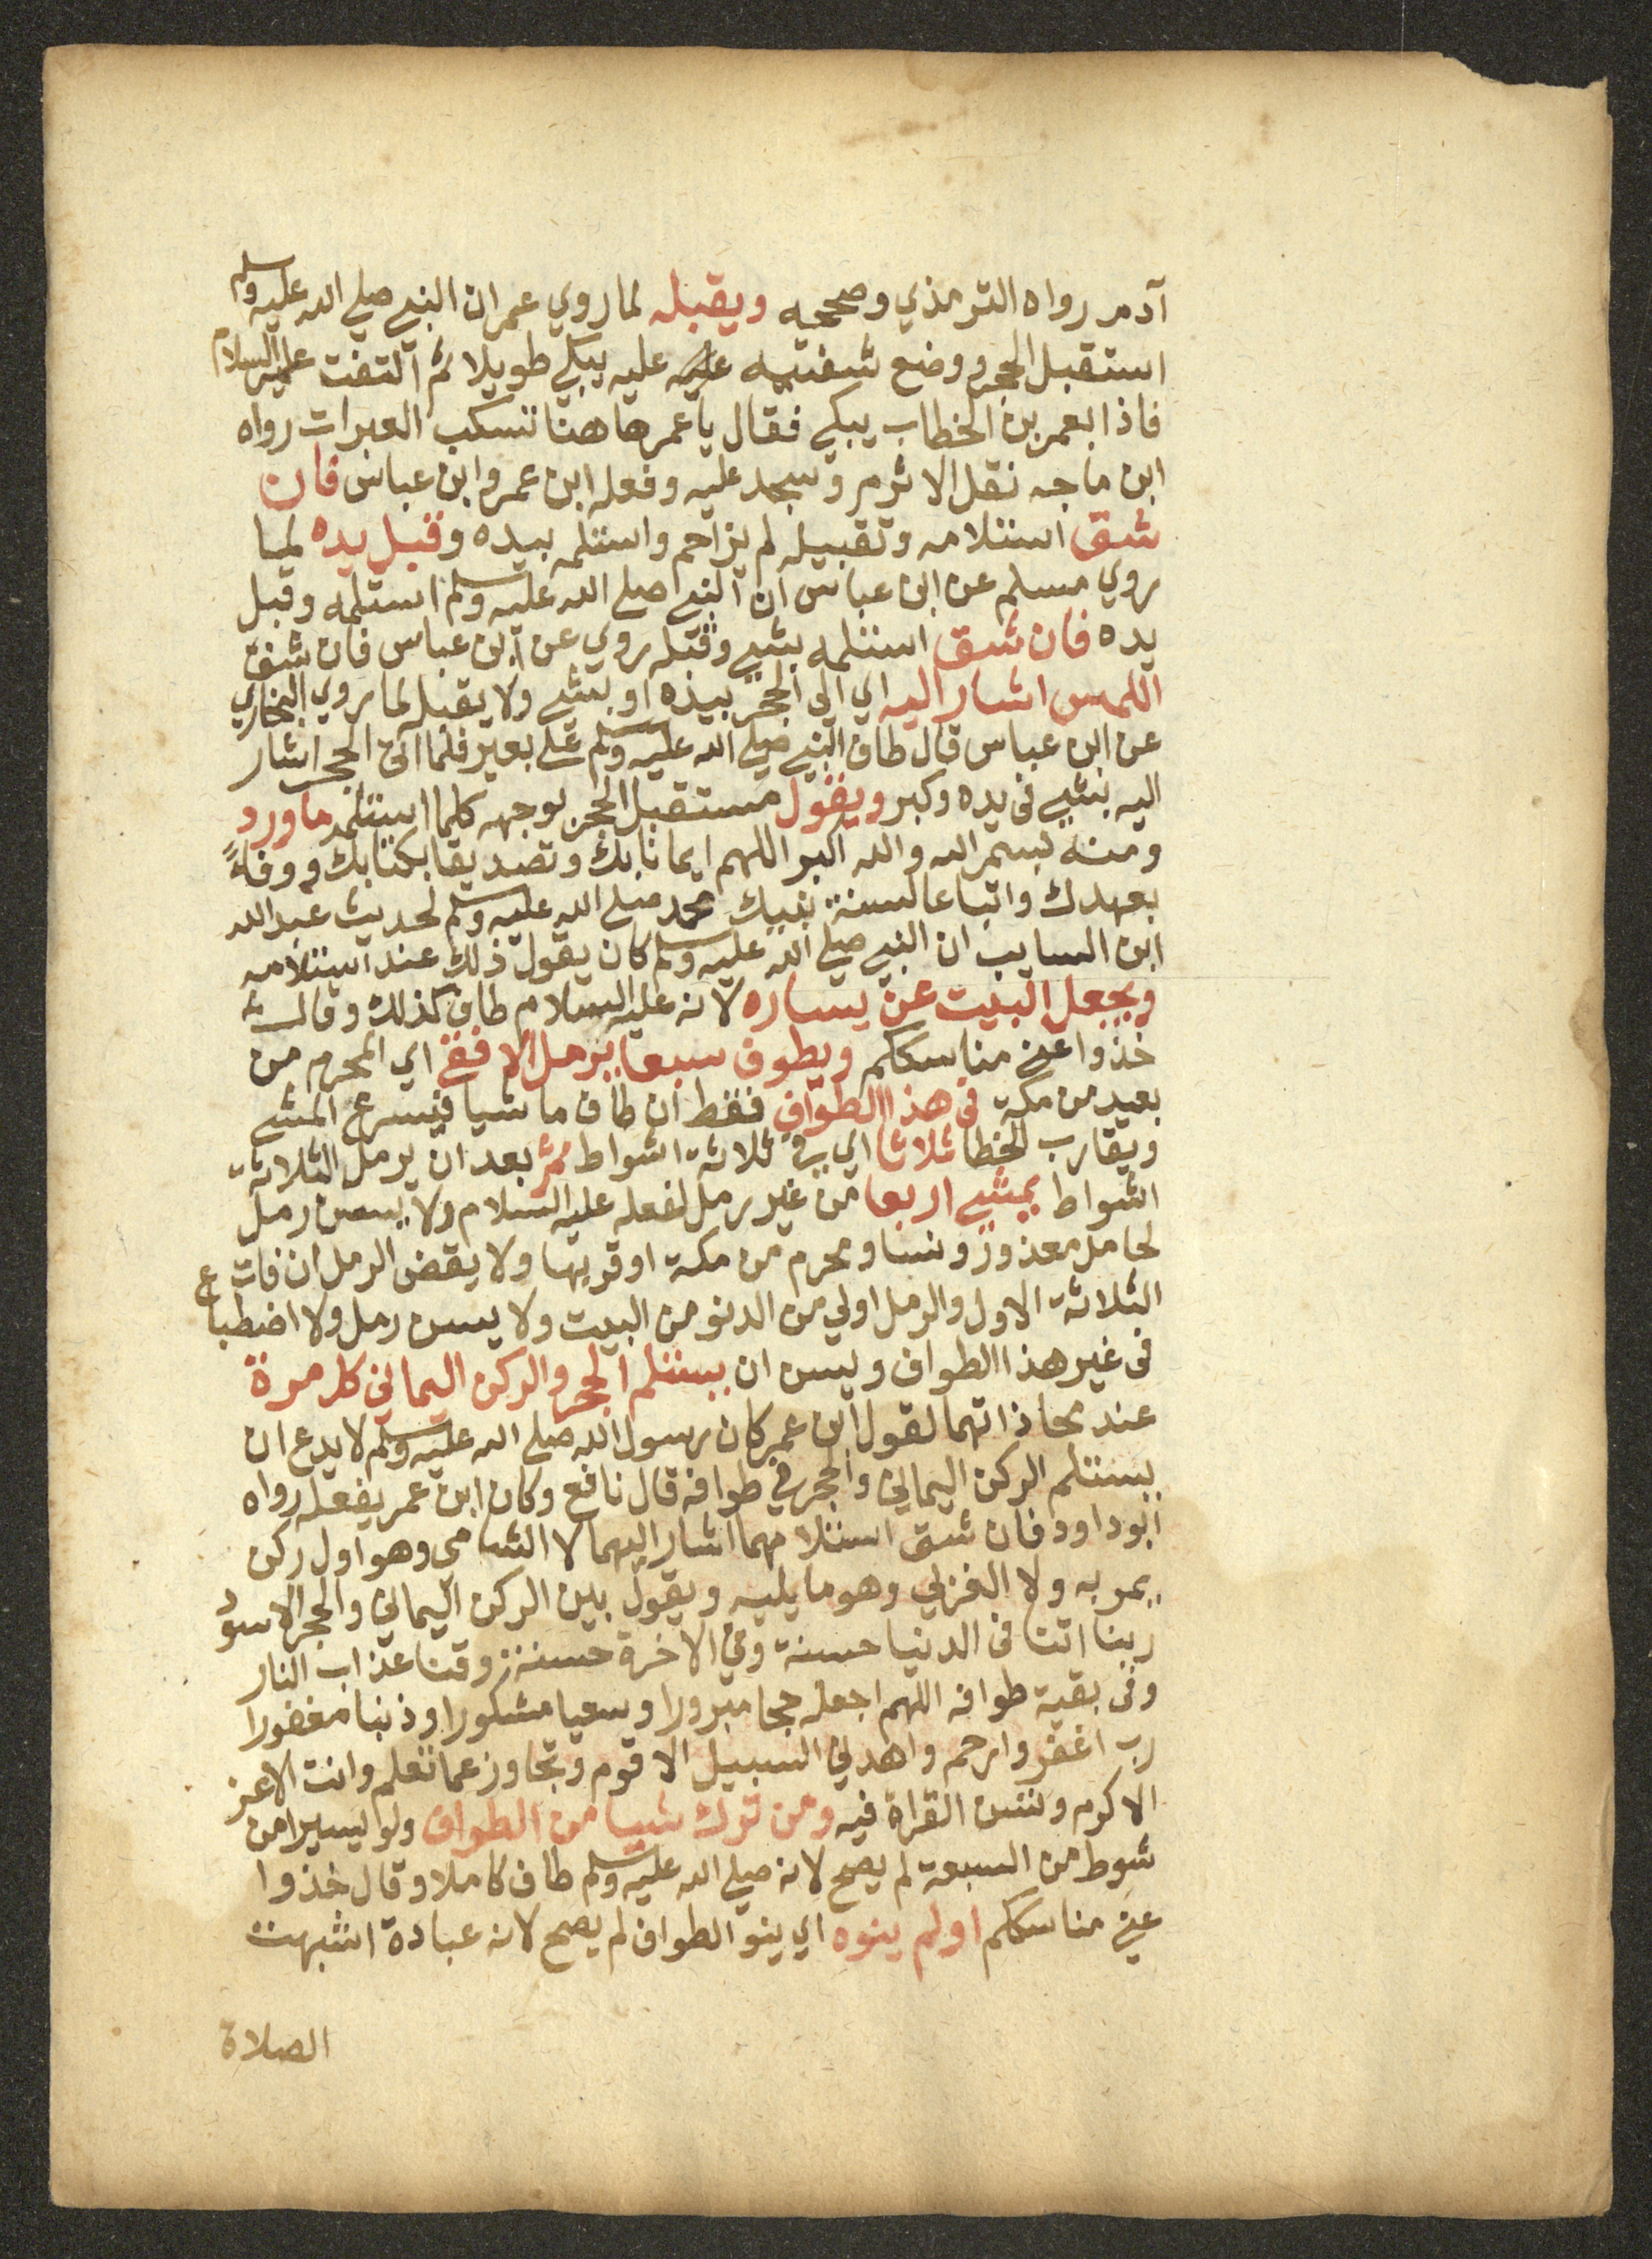 آدم رواه الترمذي وصححه ويقبله لما روي عمر ان النبي صلي الله عليه وسلم
استقبل الحجر ووضع شفتيه عليه يبكي طويلا ثم التفت عليه السلام
فاذا بعمر بن الخطاب يبكي فقال يا عمر هاهنا تسكب العبرات رواه
ابن ماجه نقل الاثرم وسجد عليه وفعله ابن عمر وابن عباس فان
شق استلامه وتقبيله لم يزاحم واستلمه بيده وقبل يده لما
روي مسلم عن ابن عباس ان النبي صلي الله عليه وسلم استلمه وقبل
يده فان شق استلمه بشي وقبله روي عن ابن عباس فان شق
اللمس اشار اليه اي الي الحجر بيده او بشي ولا يقبله لما روي البخاري
عن ابن عباس قال طاف النبي صلي الله عليه وسلم علي بعير فلما اتي الحجر اشار
اليه بشي في يده وكبر ويقول مستقبل الحجر بوجهه كلما استلمه ما ورد
ومنه بسم الله والله اكبر اللهم ايمانا بك وتصديقا بكتابك ووفاءً
بعهدك واتباعا لسنة نبيك محمد صلي الله عليه وسلم لحديث عبد الله
ابن السايب ان النبي صلي الله عليه وسلم كان يقول ذلك عند استلامه
ويجعل البيت عن يساره لانه عليه السلام طاف كذلك وقال
خذوا عني مناسككم ويطوف سبعا يرمل الافقي اي المحرم من
بعيد من مكة في هذا الطواف فقط ان طاف ماشيا فيسرع المشي
ويقارب الخطا ثلاثا اي في ثلاثة اشواط ثم بعد ان يرمل الثلاثة
اشواط يمشي اربعا من غير رمل لفعله عليه السلام ولا يسن رمل
لحامل معذور ونسا ومحرم من مكة او قربها ولا يقض الرمل ان فات في
الثلاثة الاول والرمل اولي من الدنو من البيت ولا يسن رمل ولا اضطباع
في غير هذا الطواف ويسن ان يستلم الحجر والركن اليماني كل مرة
عند محاذاتهما لقول ابن عمر كان رسول الله صلي الله عليه وسلم لا يدع ان
يستلم الركن اليماني والحجر في طوافه قال نافع وكان ابن عمر يفعله رواه
ابو داود فان شق استلامهما اشار اليهما لا الشامي وهو اول ركن
يمر به ولا الغربي وهو ما يليه ويقول بين الركن اليماني والحجر الاسود
ربنا اتنا في الدنيا حسنة وفي الاخرة حسنة وقنا عذاب النار
وفي بقية طوافه اللهم اجعله حجا مبرورا وسعيا مشكورا وذنبا مغفورا
رب اغفر وارحم واهدني السبيل الاقوم وتجاوز عما تعلم وانت الاعز
الاكرم وتسن القراة فيه ومن ترك شيا من الطواف ولو يسيرا من
شوط من السبعة لم يصح لانه صلي الله عليه وسلم طاف كاملا وقال خذوا
عني مناسككم او لم ينوه اي ينو الطواف لم يصح لانه عبادة اشبهت
الصلاة